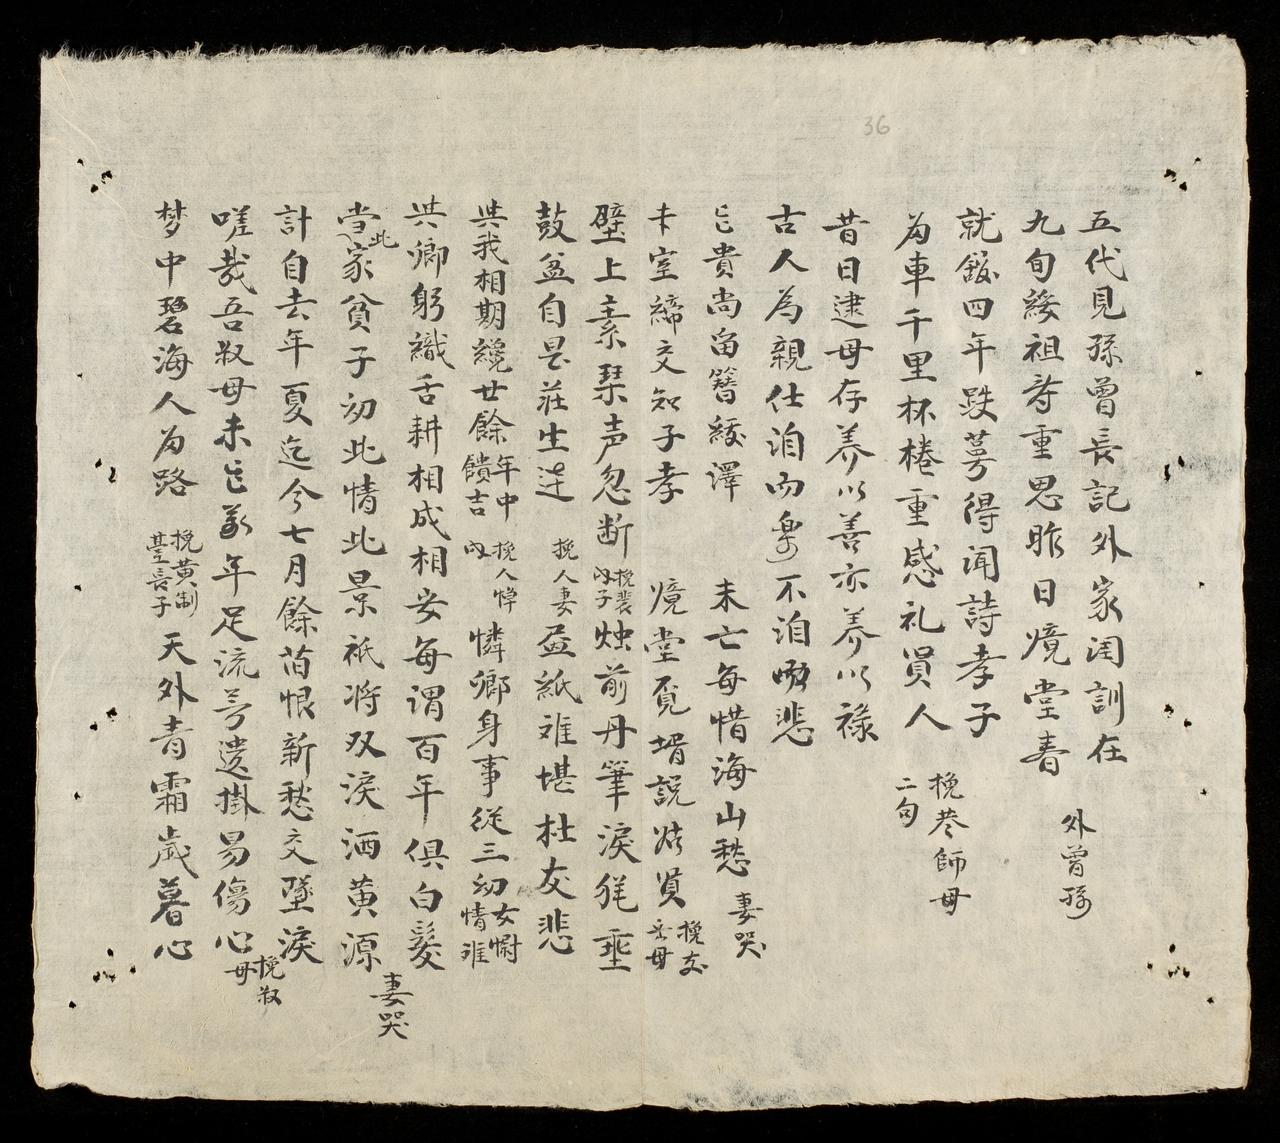 五代見孫曾長記外家閏訓在
九旬綏祖壽重思昨日壙堂春 外曾孫
就館四年跌萼得闻詩孝子
為車千里杯棬重感礼員人 挽恭師母二句
昔日逮母存养以善亦养以祿
古人為親仕洎而楽不洎啾悲
亡貴尚留簪綬澤 未亡每惜海山愁 妻哭
卡室締交知子孝 壙堂覓壻説汝贤 挽友岳母
壁上素琹声忽断 挽裴内子 烛前丹筆淚犹垂
鼓盆自是莊生达 挽人妻 昷紙难堪杜友悲
共我相期纔廿餘年中饋吉 挽人悼内 憐卿身事從三幼女嗣情难
共卿躬織舌耕相成相安每謂百年俱白髮
当此家貧子幼此情此景祇将双淚洒黄源 妻哭
計自去年夏迄今七月餘旧恨新愁交墜淚
嗟哉吾叔母未亡豕年足流芳遗掛易傷心 挽叔母
梦中碧海人为路 挽黄制基長子 天外青霜歲暮心
36